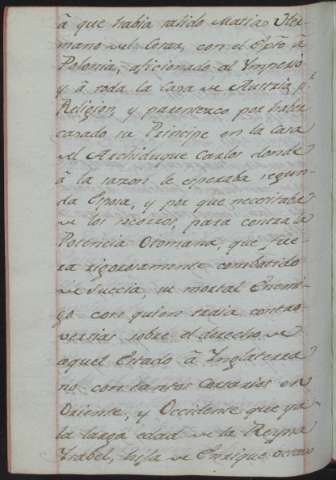 à que habia salido Matias Her=
mano del Cesar, con el Rey à
Polonia, aficionado al Imperio
y à toda la Casa de Austria p.r
Religion, y parentezco por haber
casado su Principe en la Casa
del Archiduque Carlos donde
à la sazon le esperaba segun=
da Esposa, y por que necesitaba
de los socorros, para contra la
Potencia Otomana, que fue=
ra rigorosamente combatido
de Suecia, su mortal Enemi=
go con quien tenia contro=
versias sobre el derecho de
aquel Estado à Inglaterra
no con tantos Cosarios en
Oriente, y Occidente que ya
la larga edad de la Reyna
Isabel, hija de Enrique octavo